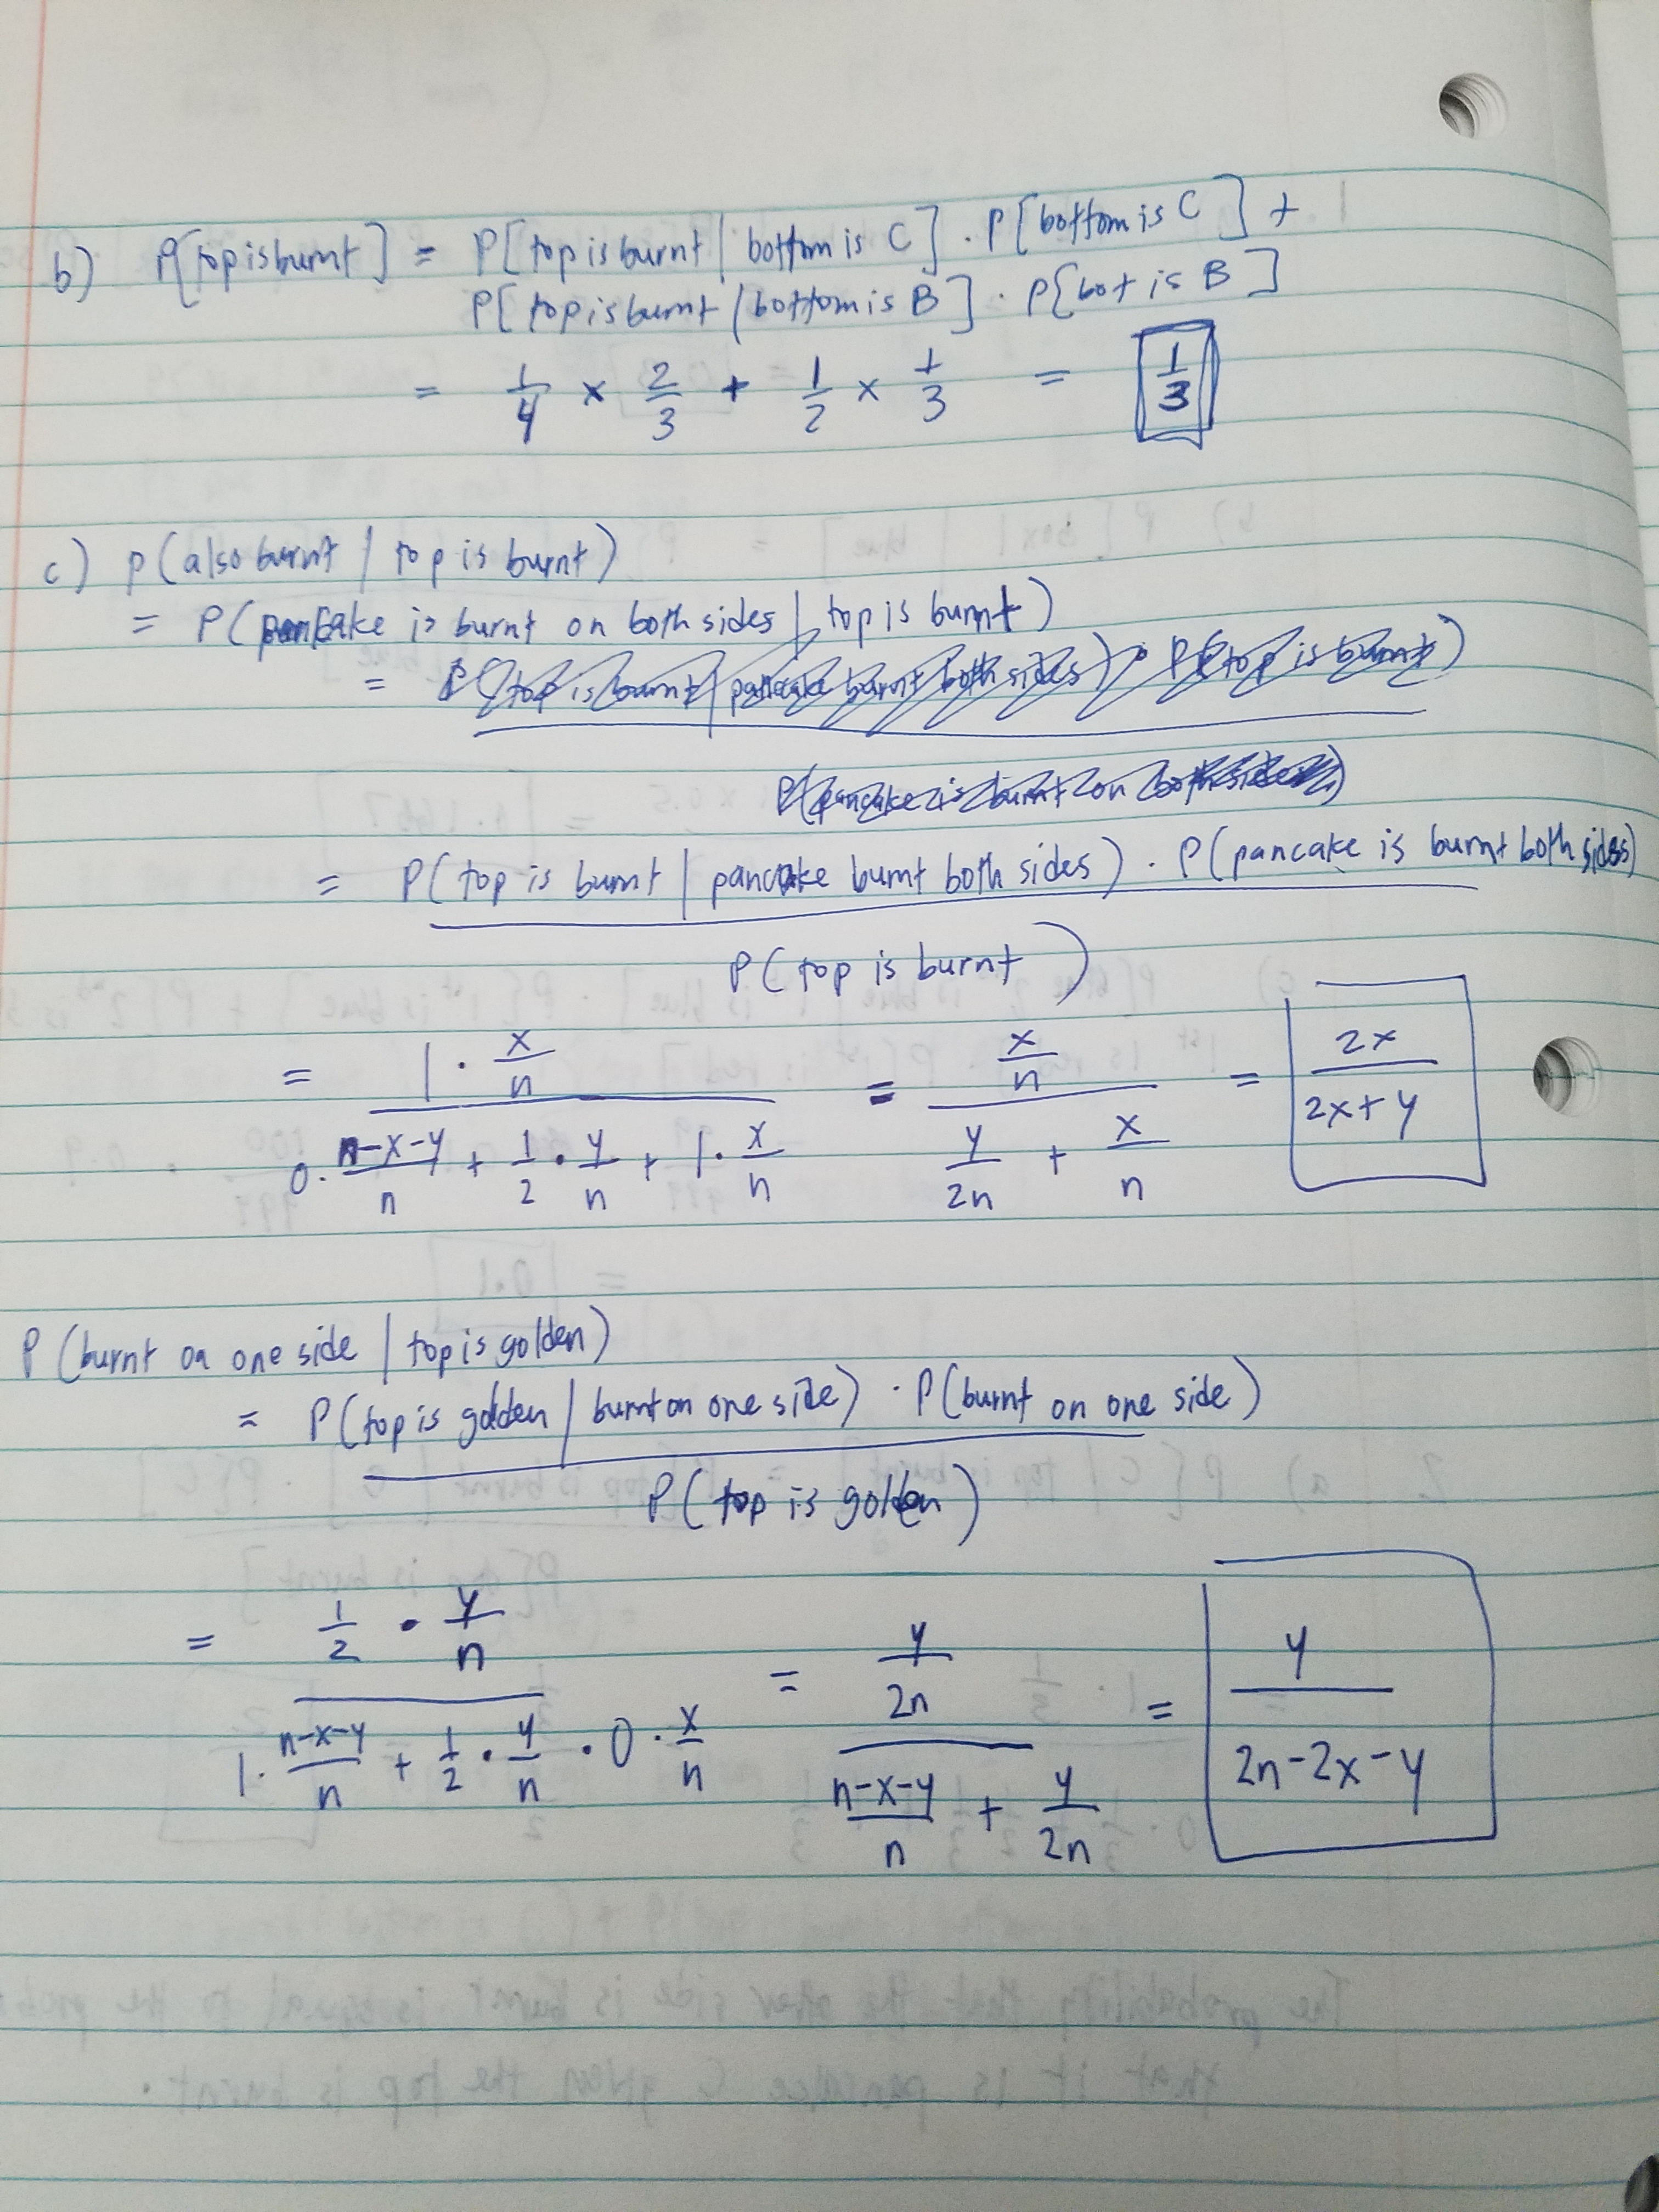 b) P[top is burnt] = P[top is burnt | bottom is C] · P[bottom is C] +
P[top is burnt | bottom is B] · P[bot is B]
= 1/4 × 2/3 + 1/2 × 1/3 = 1/3
c) P(also burnt | top is burnt)
= P(pancake is burnt on both sides | top is burnt)
= P(top is burnt | pancake burnt both sides) · P(top is burnt)
P(pancake is burnt on both sides)
= P(top is burnt | pancake burnt both sides) · P(pancake is burnt both sides)
P(top is burnt)
= 1 · x/n / (0 · n-x-y/n + 1/2 · y/n + 1 · x/n) = x/n / (y/2n + x/n) = 2x / 2x+y
P(burnt on one side | top is golden)
= P(top is golden | burnt on one side) · P(burnt on one side)
P(top is golden)
= 1/2 · y/n / (1 · n-x-y/n + 1/2 · y/n · 0 · x/n) = y/2n / (n-x-y/n + y/2n) = y / 2n-2x-y